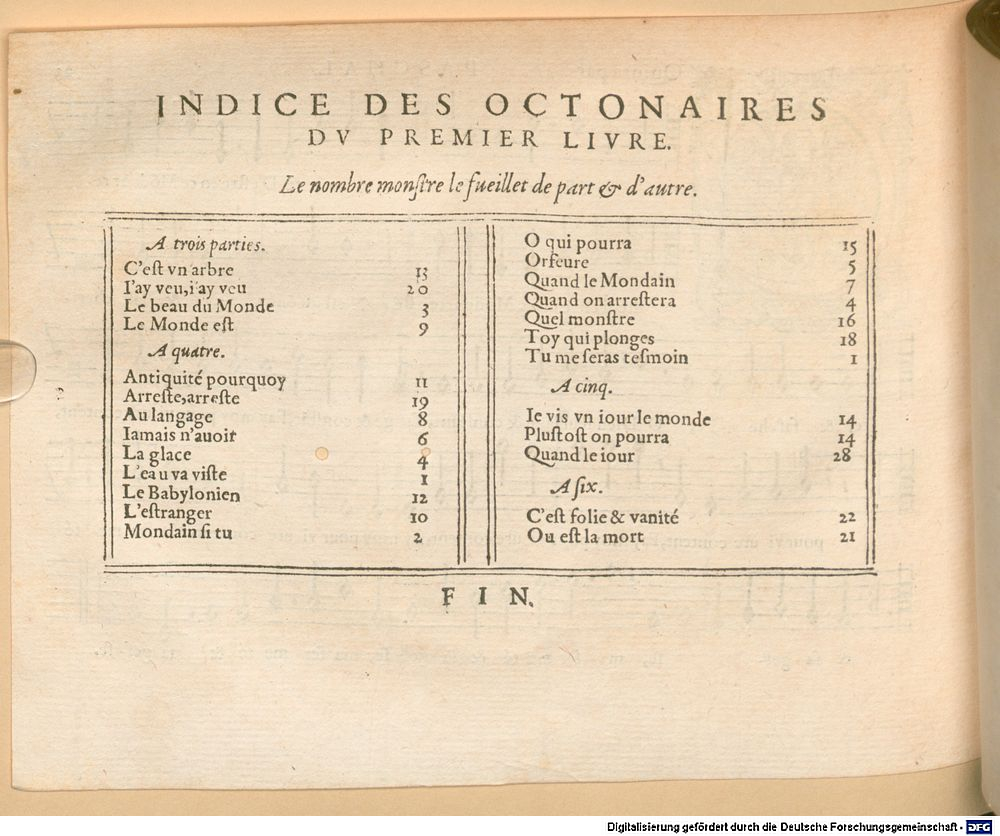 INDICE DES OCTONAIRES
DV PREMIER LIVRE.
Le nombre monſtre le fueillet de part & d'autre.
A trois parties.
C'eſt vn arbre 13
I'ay veu, i'ay veu 20
Le beau du Monde 3
Le Monde eſt 9
A quatre.
Antiquité pourquoy 11
Arreſte, arreſte 19
Au langage 8
Iamais n'auoit 6
La glace 4
L'eau va viſte 1
Le Babylonien 12
L'eſtranger 10
Mondain ſi tu 2
O qui pourra 15
Orfeure 5
Quand le Mondain 7
Quand on arreſtera 4
Quel monſtre 16
Toy qui plonges 18
Tu me ſeras teſmoin 1
A cinq.
Ie vis vn iour le monde 14
Pluſtoſt on pourra 14
Quand le iour 28
A ſix.
C'eſt folie & vanité 22
Ou eſt la mort 21
FIN.
Digitalisierung gefördert durch die Deutsche Forschungsgemeinschaft - DFG